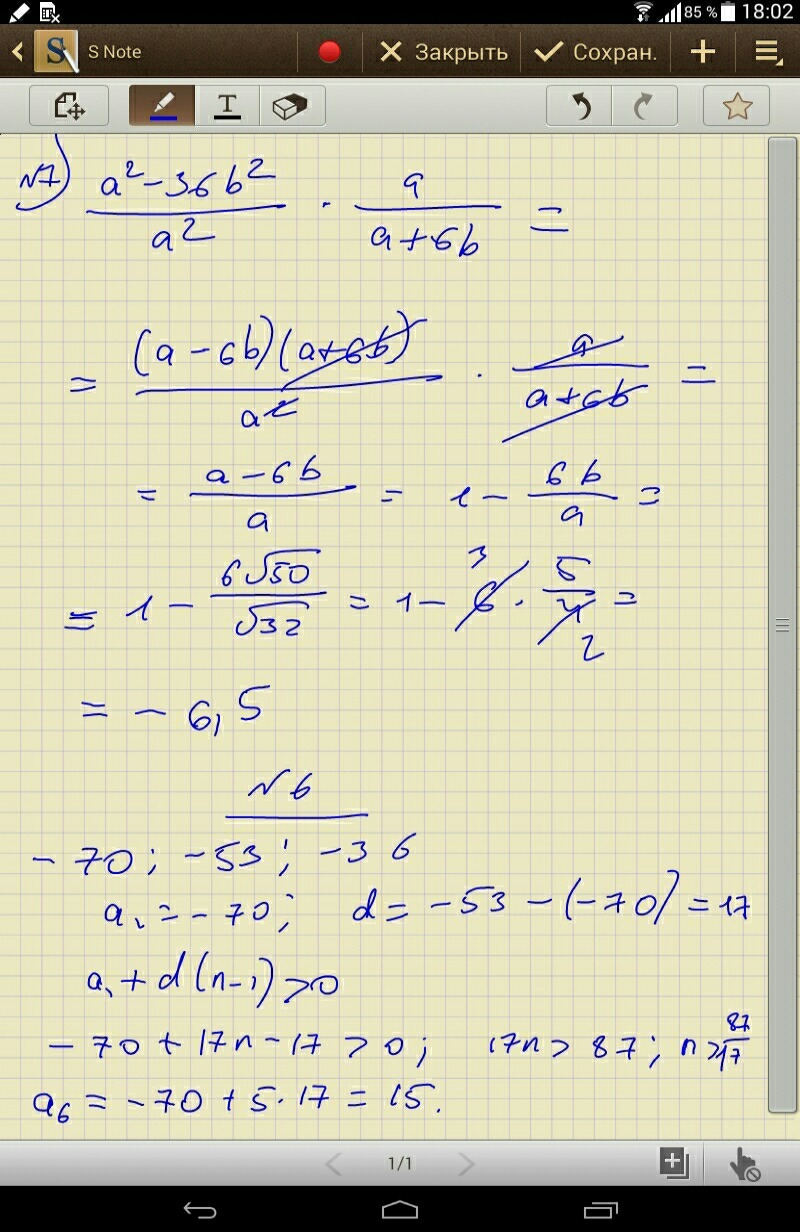 85 % 18:02
S Note Закрыть Сохран.
T
№7) (a² - 36b²)/a² · a/(a+6b) =
= (a - 6b)(a+6b)/a² · a/(a+6b) =
= (a - 6b)/a = 1 - 6b/a =
= 1 - 6√50/√32 = 1 - 6 3 · 5/4 2 =
= - 6,5
№6
- 70; -53; -36
a₁ = -70; d = -53 - (-70) = 17
a₁ + d(n-1) > 0
- 70 + 17n - 17 > 0; 17n > 87; n > 87/17
a₆ = -70 + 5·17 = 15.
1/1